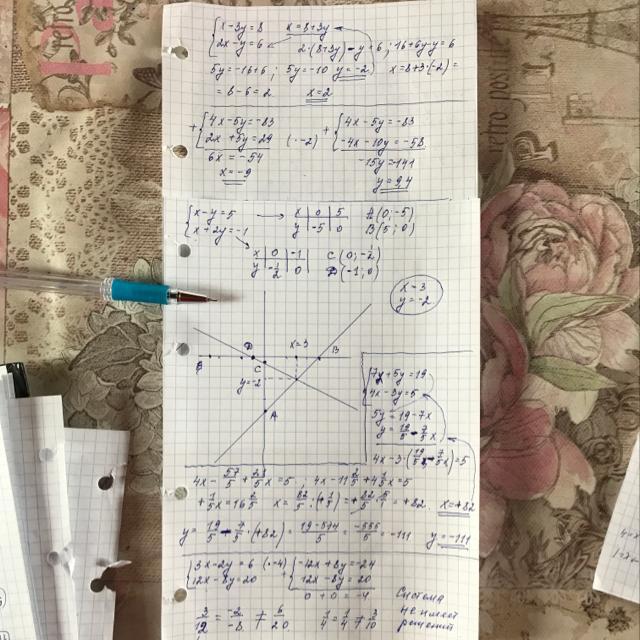 x-3y=8    x=8+3y
2x-y=6    2·(8+3y)-y=6; 16+6y-y=6
5y=-16+6; 5y=-10 y=-2 x=8+3·(-2)=
=8-6=2    x=2
+ 4x-5y=-83    + 4x-5y=-83
2x+5y=29 (·-2)    -4x-10y=-58
6x=-54    -15y=141
x=-9    y=9,4
x-y=5 → x 0 5    A(0;-5)
x+2y=-1    y -5 0    B(5;0)
x 0 -1    C(0;-2)
y -1/2 0    D(-1;0)
x=3
y=-2
x=3
B
D
B
C
y=-2
A
7y+5y=19
4x-3y=5
5y=19-7x
y=19/5-7/5x
4x-3·(19/5-7/5x)=5
4x-57/5+21/5x=5; 4x-11 2/5+4 1/5x=5
x=+82
y=19/5-7/5·(+82)=19-574/5=-555/5=-111    y=-111
3x-2y=6 (·-4)    + -12x+8y=-24
12x-8y=20    12x-8y=20
0+0=-4
Система
не имеет
решений
3/12=-2/-8≠6/20    1/4=1/4≠3/10